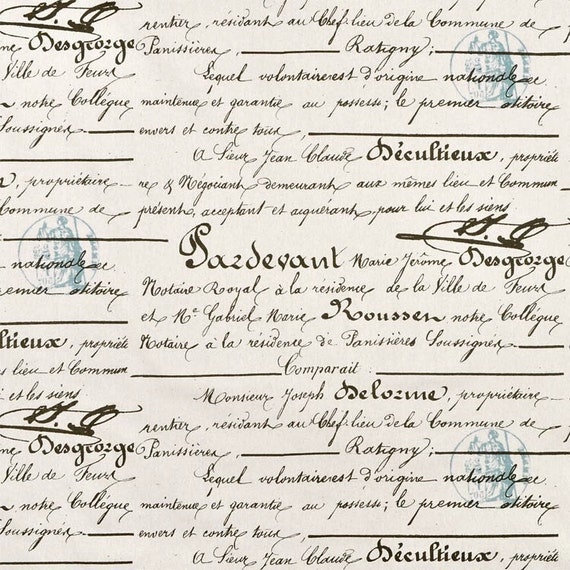 rentier, résidant au Chef-lieu de la Commune de
Desgeorge Panissières, Ratigny;
Ville de Feurs Lequel volontairest d'origine nationale
notre Collègue maintenue et garantie au possess; le premier otitoire
Soussignés envers et contre tous,
A Sieur Jean Claude Décultieux, propriété
, propriétaire re & Négociant demeurant aux mêmes lieu et Commun
Commune de présent, acceptant et acquérant, pour lui et les siens.
nationale Pardevant Marie Jérôme Desgeorge
premier otitoire Notaire Royal à la résidence de la Ville de Feurs
et Me Gabriel Marie Roussen notre Collègue
ltieux, propriété Notaire à la résidence de Panissières Soussignés
lieu et Commun Comparait:
et les siens Monsieur Joseph Delorme, propriétaire
rentier, résidant au Chef-lieu de la Commune de
Desgeorge Panissières, Ratigny;
Ville de Feurs Lequel volontairest d'origine nationale
notre Collègue maintenue et garantie au possess; le premier otitoire
Soussignés envers et contre tous,
A Sieur Jean Claude Décultieux, propriété